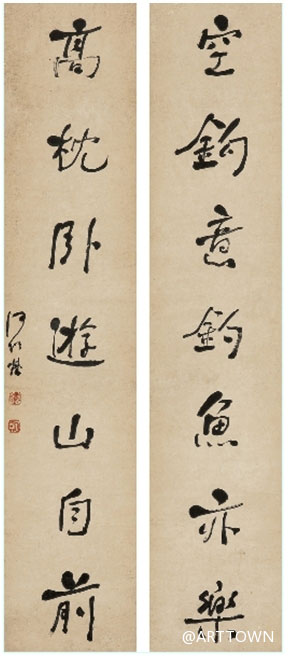 空鉤意釣魚亦樂
高枕卧遊山自前
何紹基
@ARTTOWN